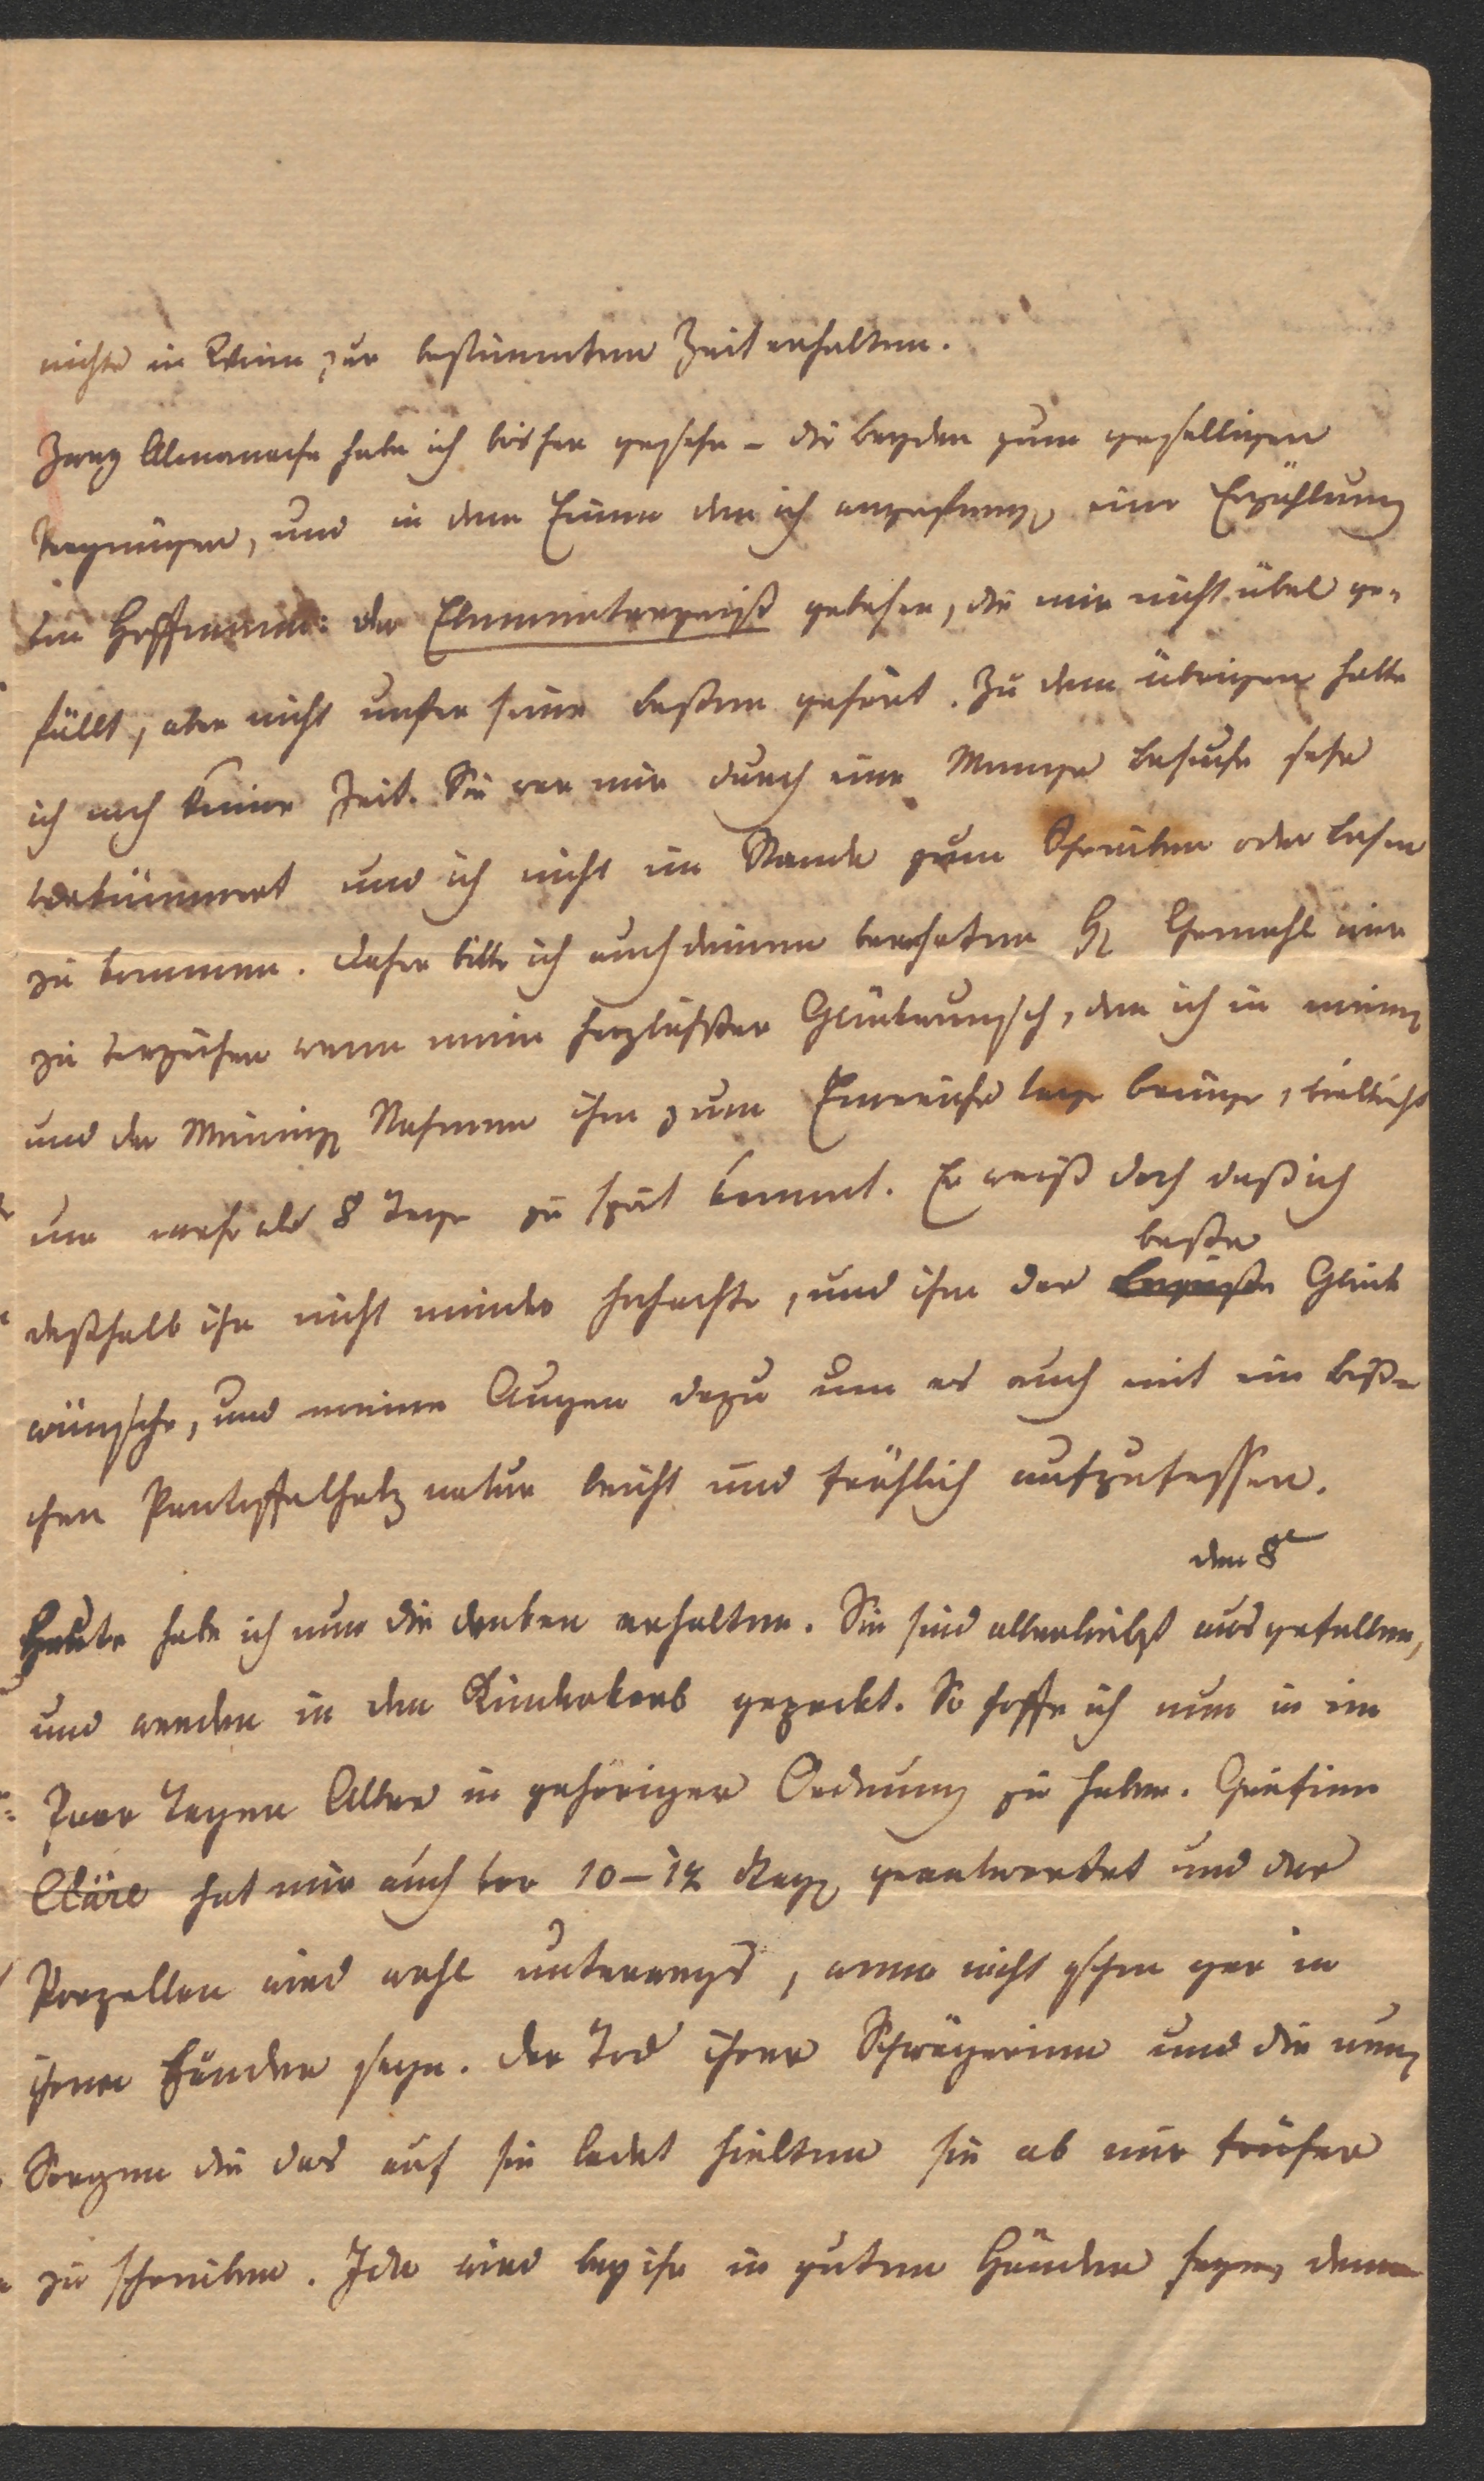 nichts in Wien zur bestimmten Zeit erhalten.
Zwey Almanache habe ich bisher gesehn – die beyden zum geselligen
Vergnügen, und in dem Einen den ich angefangen, eine Erzählung
von Hoffmann: der Elementargeist gelesen, die mir nicht übel ge-
fällt, aber nicht unter seine besten gehört. Zu dem übrigen hatte
ich noch keine Zeit. Sie war mir durch eine Menge Besuche sehr
verkümmert und ich nicht im Stande zum Schreiben oder Lesen
zu kommen. Daher bitte ich auch deinen verehrten H. Gemahl mir
zu verzeihen wenn mein herzlichster Glückwunsch, den ich in meinem
und der Meinigen Nahmen ihm zum Tage bringe, vielleicht
um mehr als 8 Tage zu spät kommt. Er weiß doch daß ich
beste
deßhalb ihn nicht minder hochachte, und ihm das Glück
wünsche, und meine Augen dazu um es auch mit ein biß-
chen Pantoffelholz natur leicht und fröhlich aufzufassen.
den 8t
Heute habe ich nun die erhalten. Sie sind allerliebst ausgefallen,
und werden in den gepackt. So hoffe ich nun in ein
Paar Tagen Alles in gehöriger Ordnung zu haben. Gräfinn
Cläre hat mir auch vor 10–12 Tagen geantwortet und das
Porzellan wird wohl unterwegs, wenn nicht schon gar in
ihren Händen seyn. Der Tod ihrer Schwägerinn und die neuen
Sorgen die das auf sie ladet hielten sie ab mir früher
zu schreiben. Ida wird bey ihr in guten Händen seyn, denn